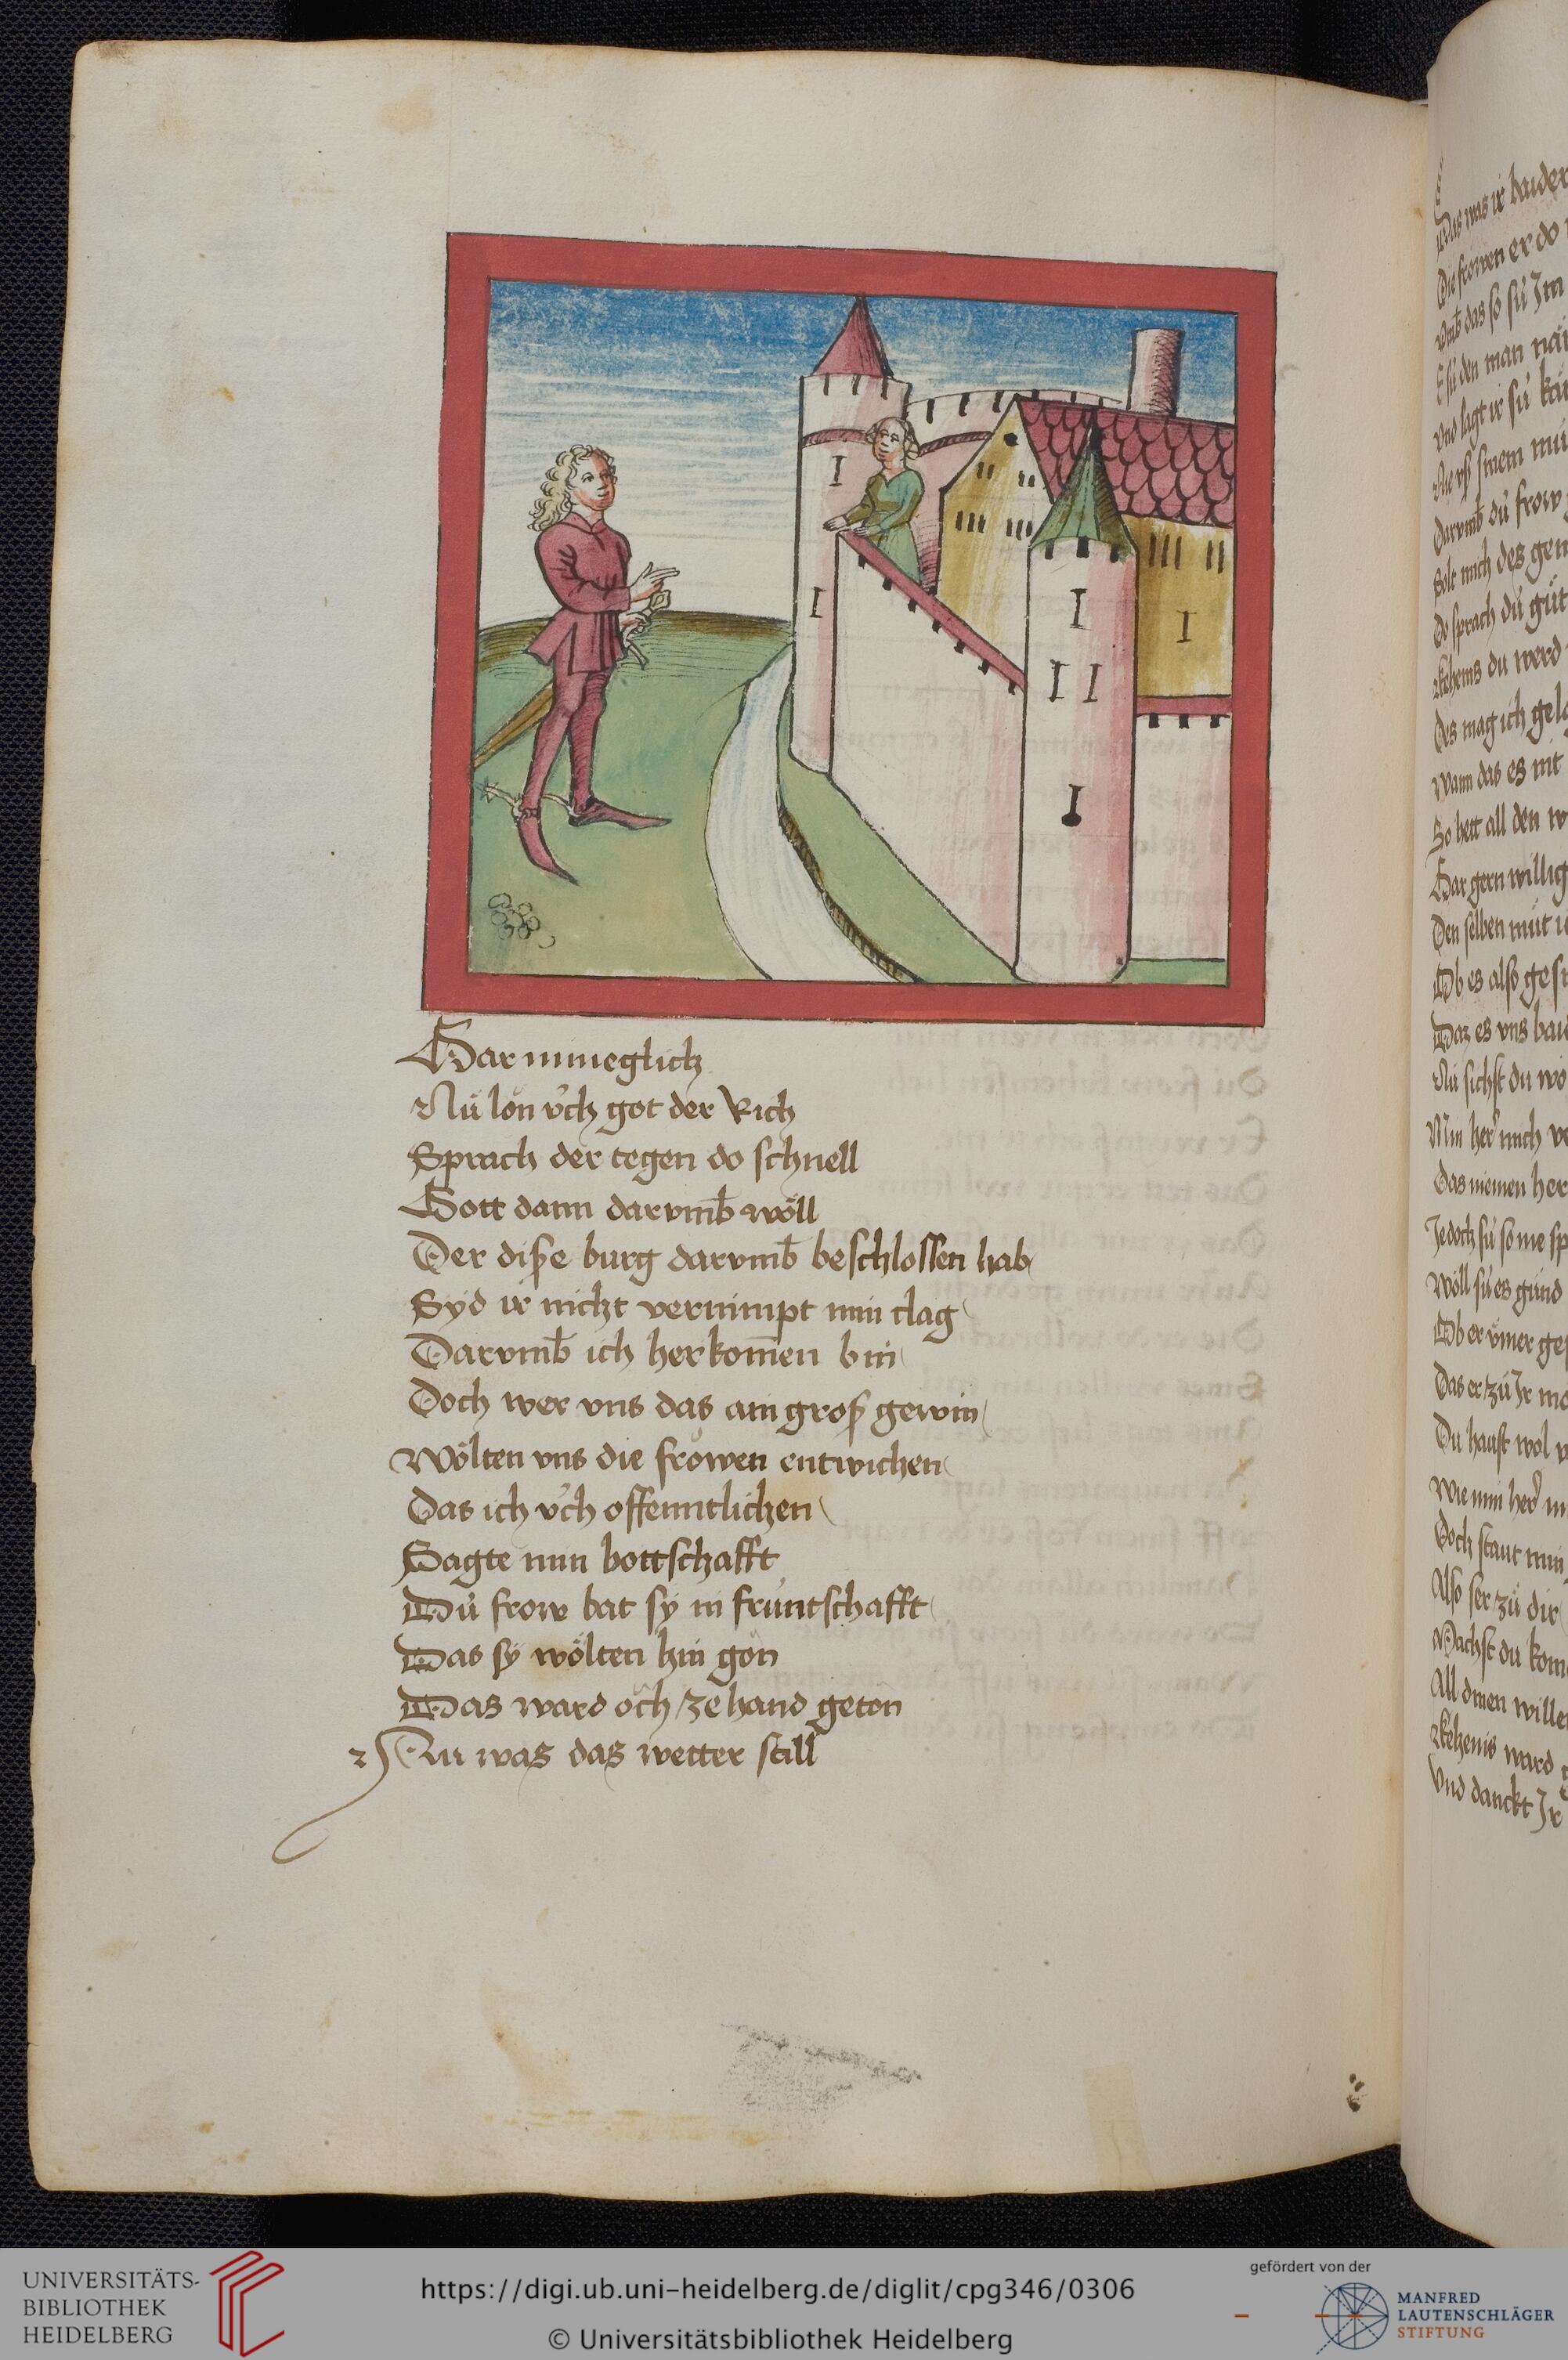 Gar minneglich
Nů lön v́ch got der Rich
Sprach der tegen do schnell
Gott dann darvmb̄ wöll
Der diße burg darvmb̄ beschlossen hab
Syd ir nicht vernimpt min clag
Darvmb̄ ich her kom̄en bin
Doch wer vns das ain groß gewin
Wölten vns die frowen entwichen
Das ich v́ch offenntlichen
Sagte min bottschafft
Dú frow bat sy in frúntschafft
Das sy wölten hin gön
Das ward öch ze hand geton
Nu was das wetter still
Das was ir baider
Die frowen er do
vmb̄ das so sú Im
E sú den man
vnd sagt ir sú
Darvmb̄ dú frow
Solt mich des
Do sprach dú gůt
kehenis du werd
Des mag ich
Wann das es nit
So hett all den
Gar gern willig
Den selben můt
Ob es also
Daz es vns
Nů sichst du wo
Min her mich
Das meinen her
Jedoch sú so me
Wöll sú es
Ob er ymer
Das er zů Jr
Du haust wol
Wie min her
Doch staut min
Also ser zů dir
Machst du
All dinen
kehenis ward
Vnd danckt Jr
UNIVERSITÄTS-
BIBLIOTHEK
HEIDELBERG
https://digi.ub.uni-heidelberg.de/diglit/cpg346/0306
© Universitätsbibliothek Heidelberg
gefördert von der
MANFRED
LAUTENSCHLÄGER
STIFTUNG